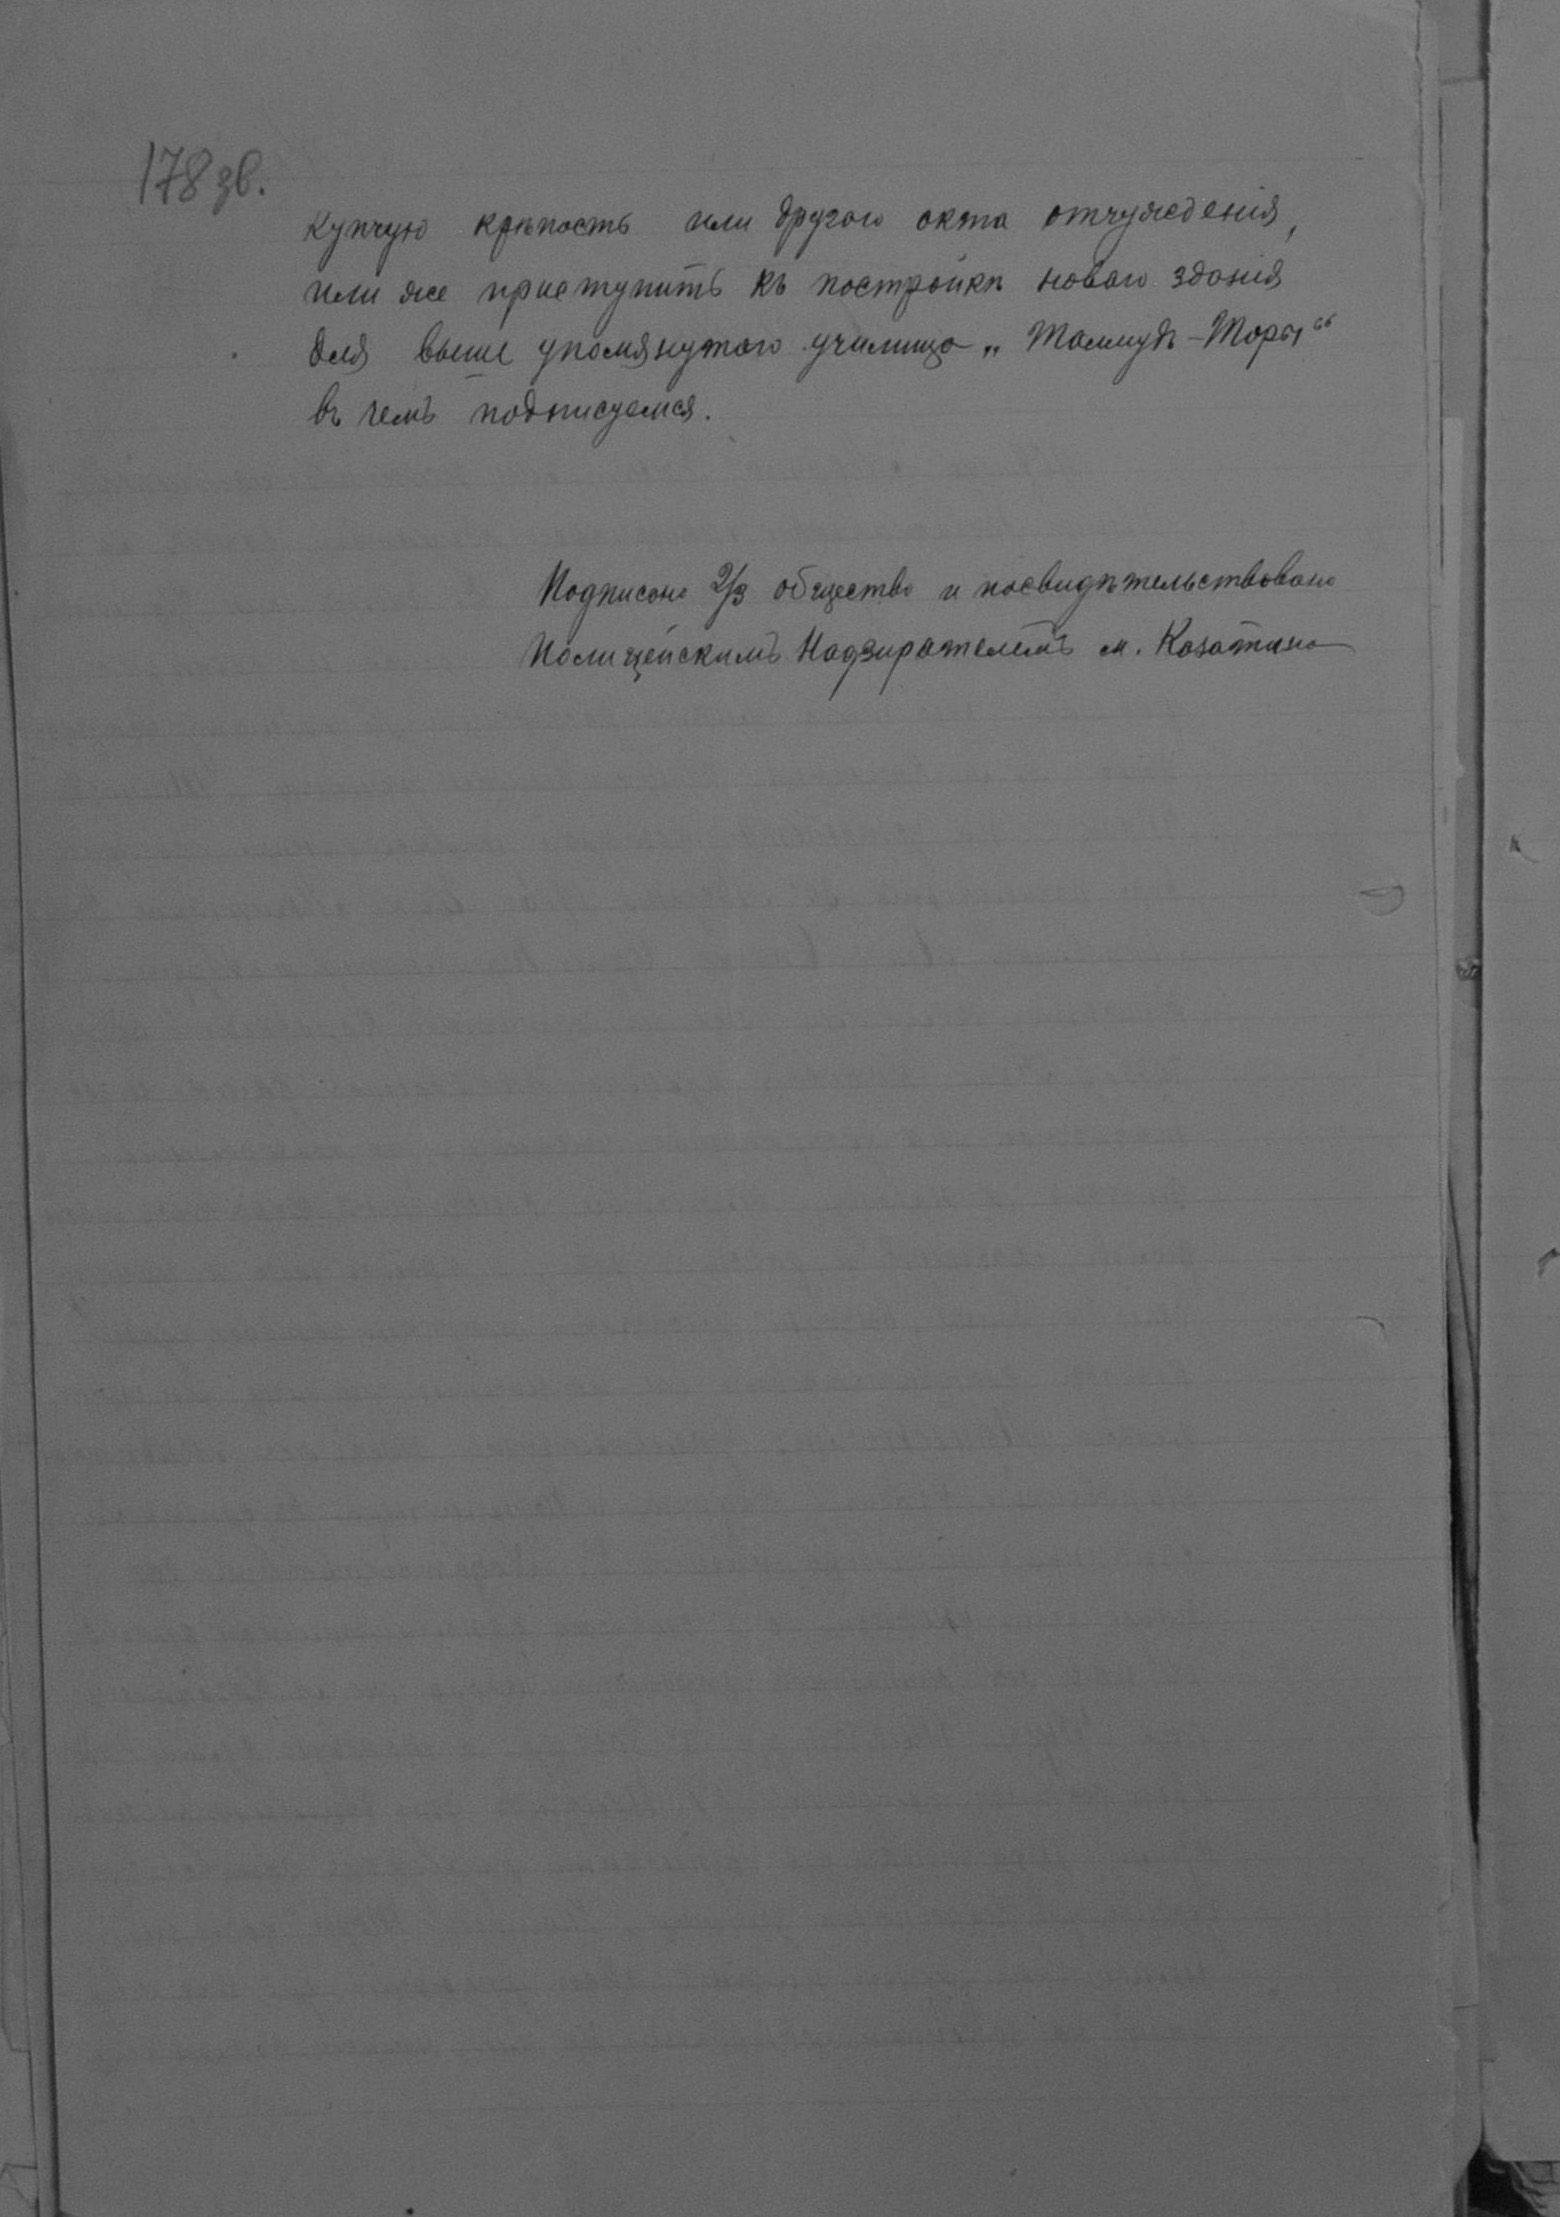 178 зв.
купчую крѣпость или другого акта отчужденія,
или же приступить къ постройкѣ новаго зданія
для выше упомянутаго училища „Талмудъ-Торы“
въ чемъ подписуемся.
Подписано 2/3 общества и посвидѣтельствовано
Полицейскимъ Надзирателемъ м. Казатина